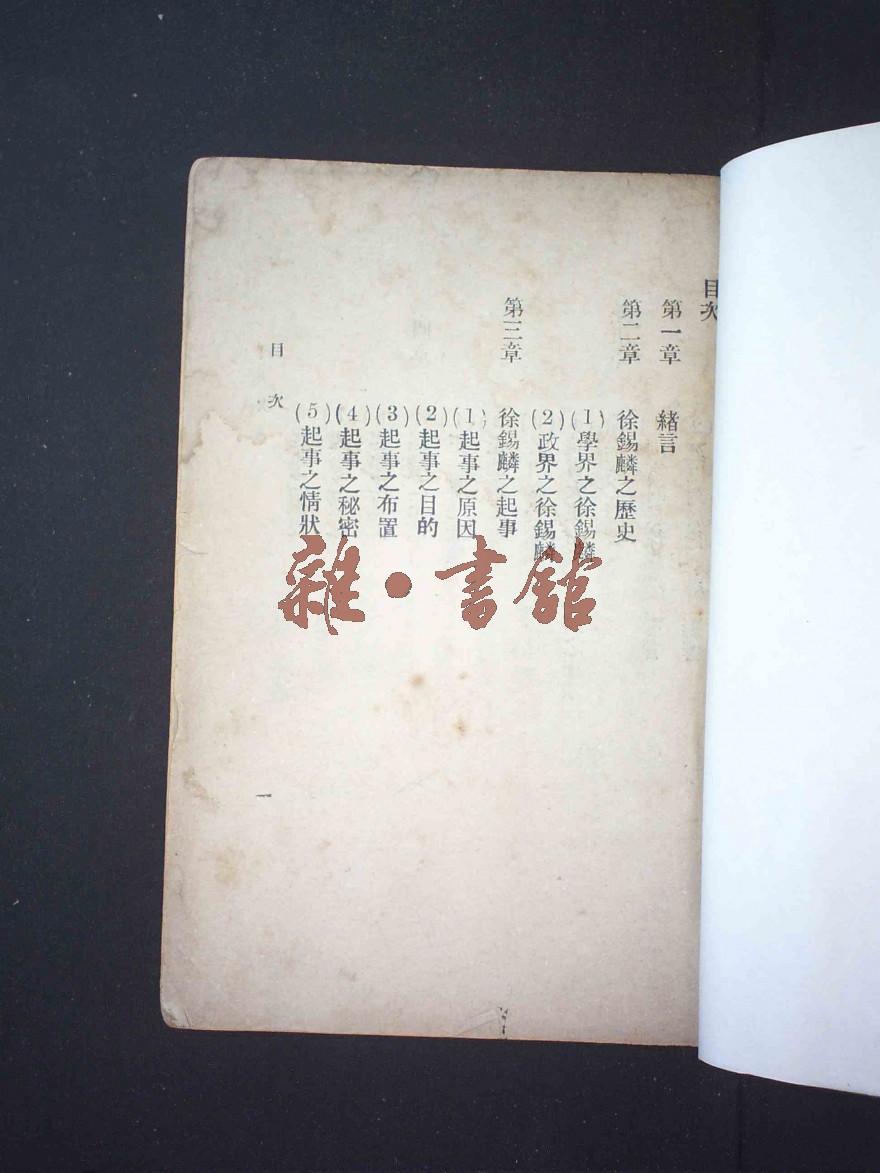 目次
第一章 緒言
第二章 徐錫麟之歷史
(1)學界之徐錫麟
(2)政界之徐錫麟
第三章 徐錫麟之起事
(1)起事之原因
(2)起事之目的
(3)起事之布置
(4)起事之秘密
(5)起事之情狀
目次
一
雜·書館